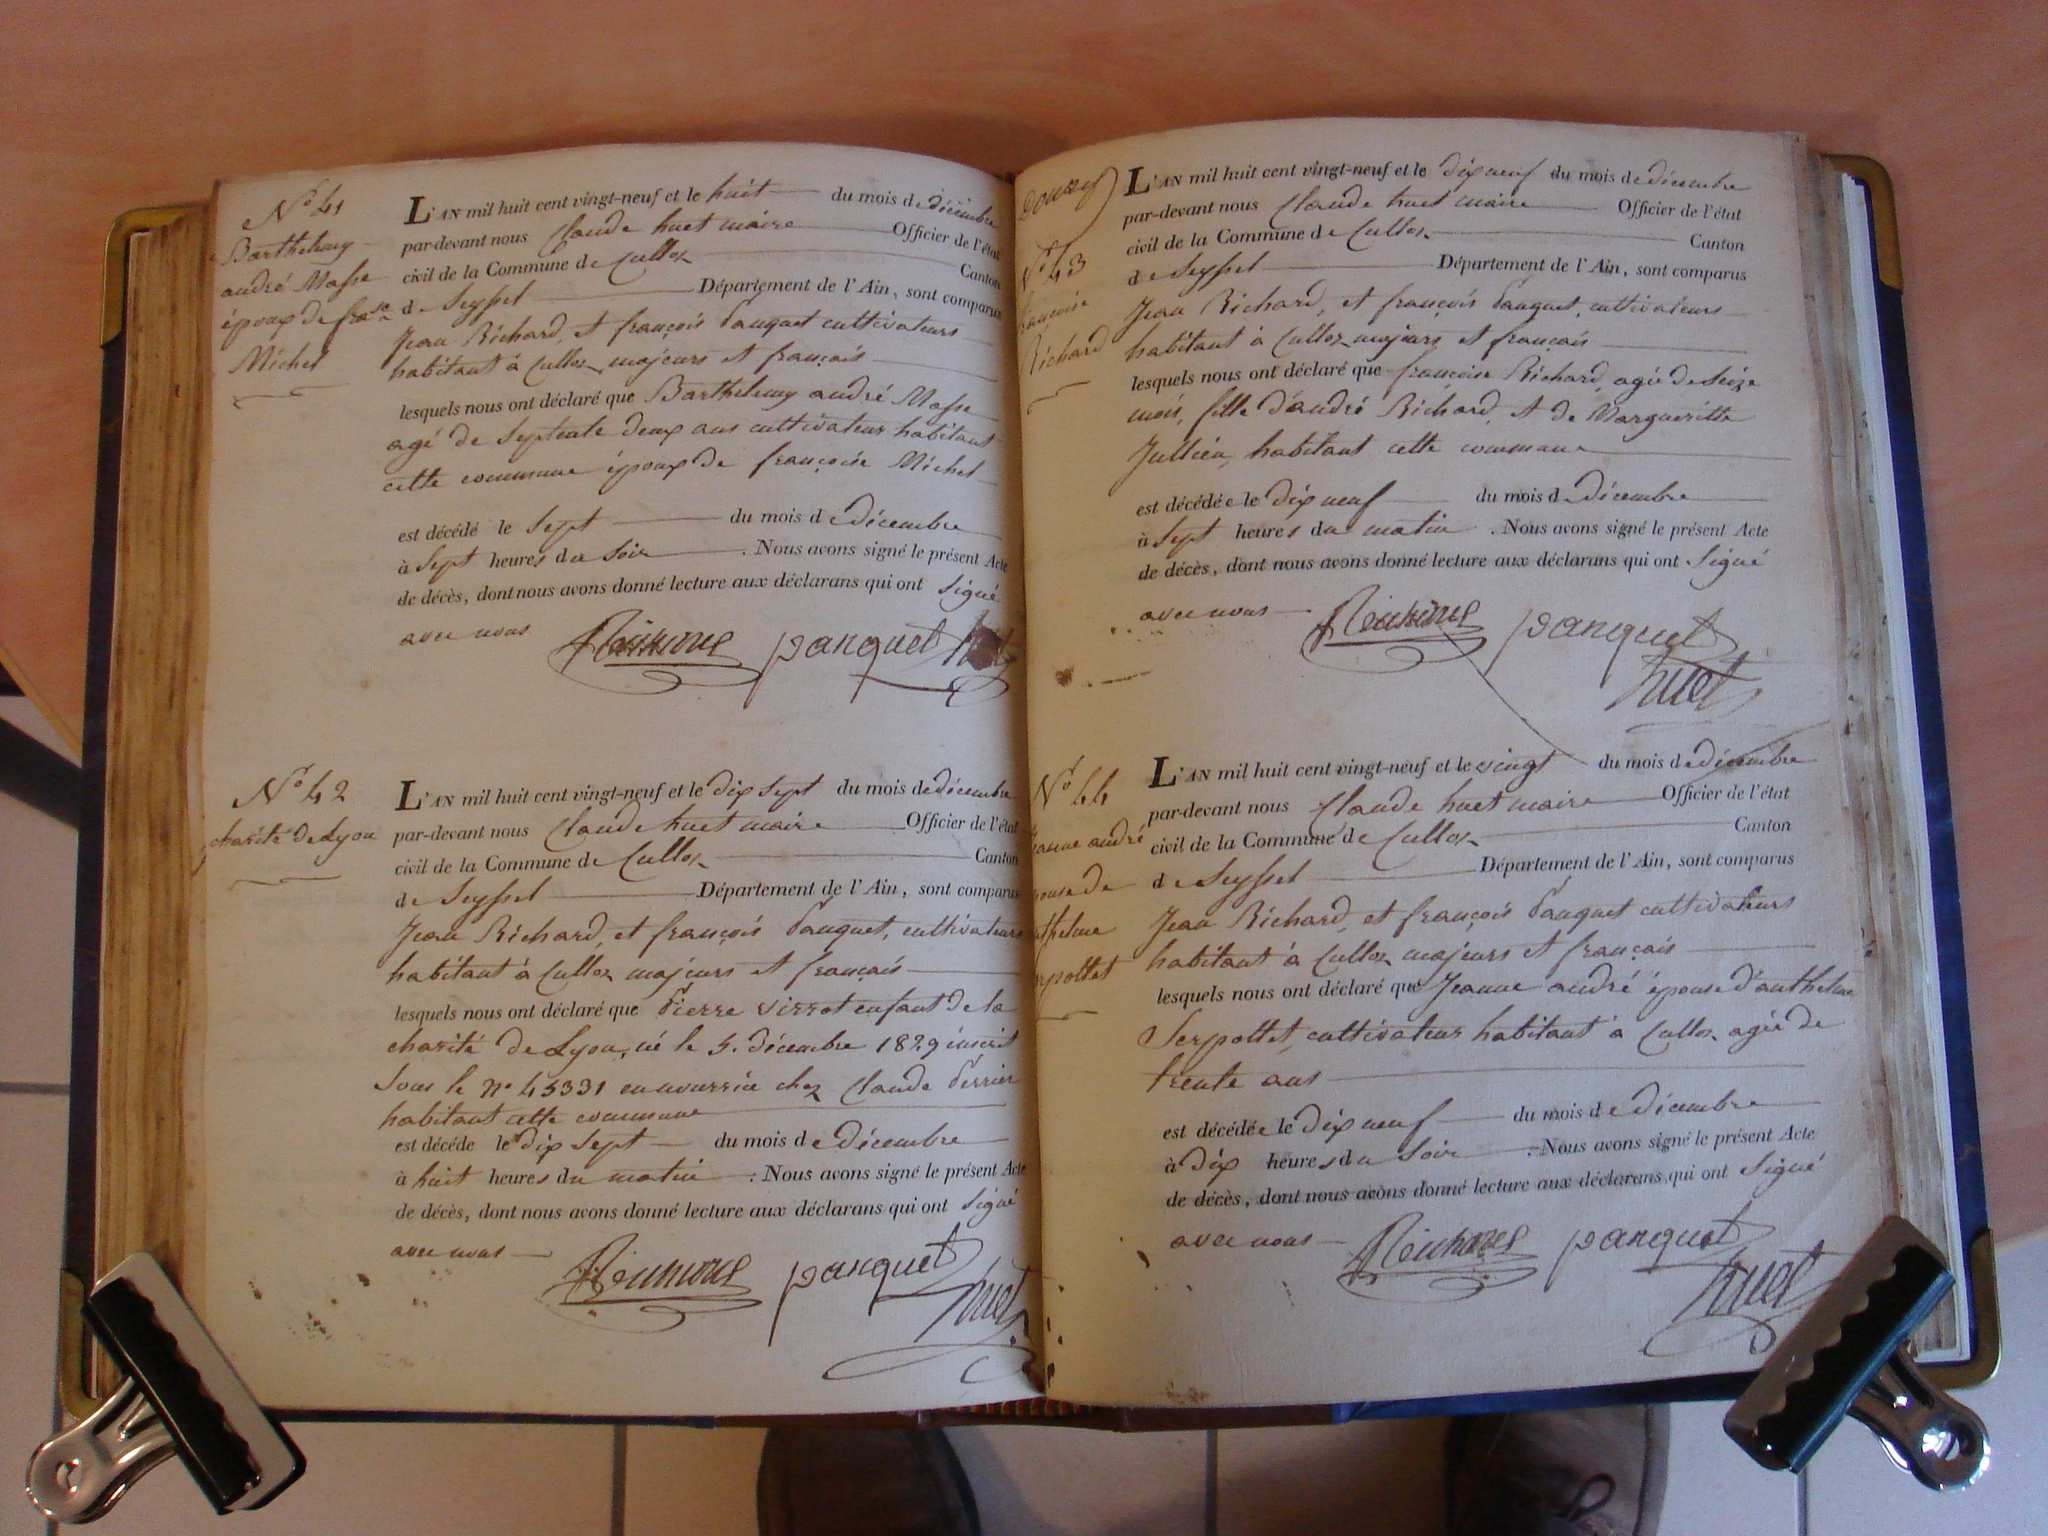 N° 41
Barthelemy
andré Masse
époux de frse
Michel
L'AN mil huit cent vingt-neuf et le huit du mois de décembre
par-devant nous Claude huet maire Officier de l'état
civil de la Commune de Culloz Canton
de Seyssel Département de l'Ain, sont comparus
Jean Richard, et françois Panquet cultivateurs
habitant à Culloz majeurs et français
lesquels nous ont déclaré que Barthelemy andré Masse
agé de septente deux ans cultivateur habitant
cette commune époux de françoise Michel
est décédé le sept du mois de décembre
à sept heures du soir . Nous avons signé le présent Acte
de décès, dont nous avons donné lecture aux déclarans qui ont signé
avec nous
panquet huet
N° 42
charité de Lyon
L'AN mil huit cent vingt-neuf et le dix sept du mois de décembre
par-devant nous Claude huet maire Officier de l'état
civil de la Commune de Culloz Canton
de Seyssel Département de l'Ain, sont comparus
Jean Richard, et françois Panquet, cultivateurs
habitant à Culloz majeurs et français
lesquels nous ont déclaré que Pierre Virrot enfant de la
charité de Lyon, né le 5. décembre 1829 inscrit
sous le n° 45331 en nourrice chez Claude Perrier
habitant cette commune
est décédé le dix sept du mois de décembre
à huit heures du matin . Nous avons signé le présent Acte
de décès, dont nous avons donné lecture aux déclarans qui ont signé
avec nous
panquet
huet
N° 43
françoise
Richard
L'AN mil huit cent vingt-neuf et le dix neuf du mois de décembre
par-devant nous Claude huet maire Officier de l'état
civil de la Commune de Culloz Canton
de Seyssel Département de l'Ain, sont comparus
Jean Richard, et françois Panquet, cultivateurs
habitant à Culloz majeurs et français
lesquels nous ont déclaré que françoise Richard, agée de seize
mois, fille d'andré Richard, et de Margueritte
Jullien, habitant cette commune
est décédée le dix neuf du mois de décembre
à sept heures du matin . Nous avons signé le présent Acte
de décès, dont nous avons donné lecture aux déclarans qui ont signé
avec nous
panquet
huet
N° 44
Jeanne andré
épouse de
anthelme
Serpollet
L'AN mil huit cent vingt-neuf et le vingt du mois de décembre
par-devant nous Claude huet maire Officier de l'état
civil de la Commune de Culloz Canton
de Seyssel Département de l'Ain, sont comparus
Jean Richard, et françois Panquet cultivateurs
habitant à Culloz majeurs et français
lesquels nous ont déclaré que Jeanne andré épouse d'anthelme
Serpollet, cultivateur habitant à Culloz agée de
trente ans
est décédée le dix neuf du mois de décembre
à dix heures du soir . Nous avons signé le présent Acte
de décès, dont nous avons donné lecture aux déclarans qui ont signé
avec nous
panquet
huet